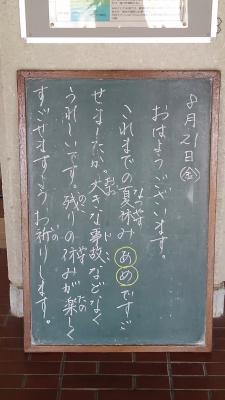 8月21日㊎
おはようございます。
これまでの夏休みあめですご
せましたか。大きな事故などなく
うれしいです。残りの休みが楽しく
すごせますようお祈りします。